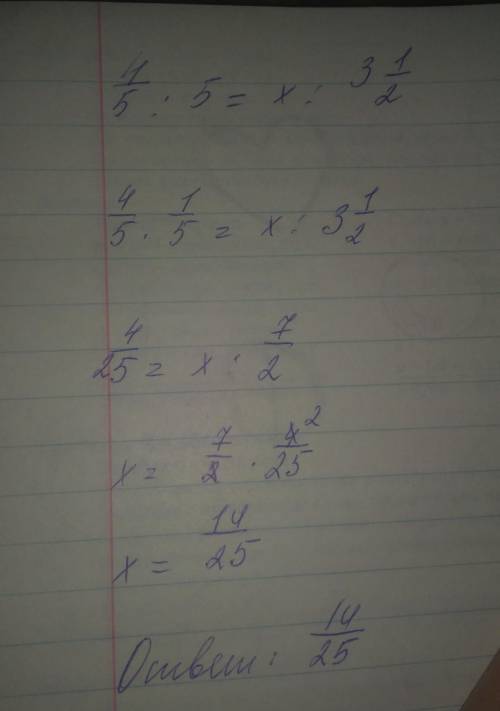 4/5 : 5 = x : 3 1/2
4/5 · 1/5 = x : 3 1/2
4/25 = x : 7/2
x = 7/2 · 4/25 2
x = 14/25
Ответ: 14/25